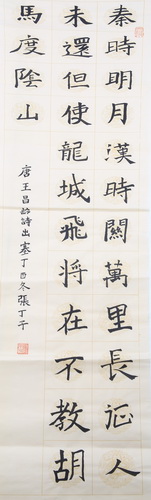 秦時明月漢時關萬里長征人
未還但使龍城飛将在不教胡
馬度陰山
唐王昌龄詩出塞丁酉冬張丁予